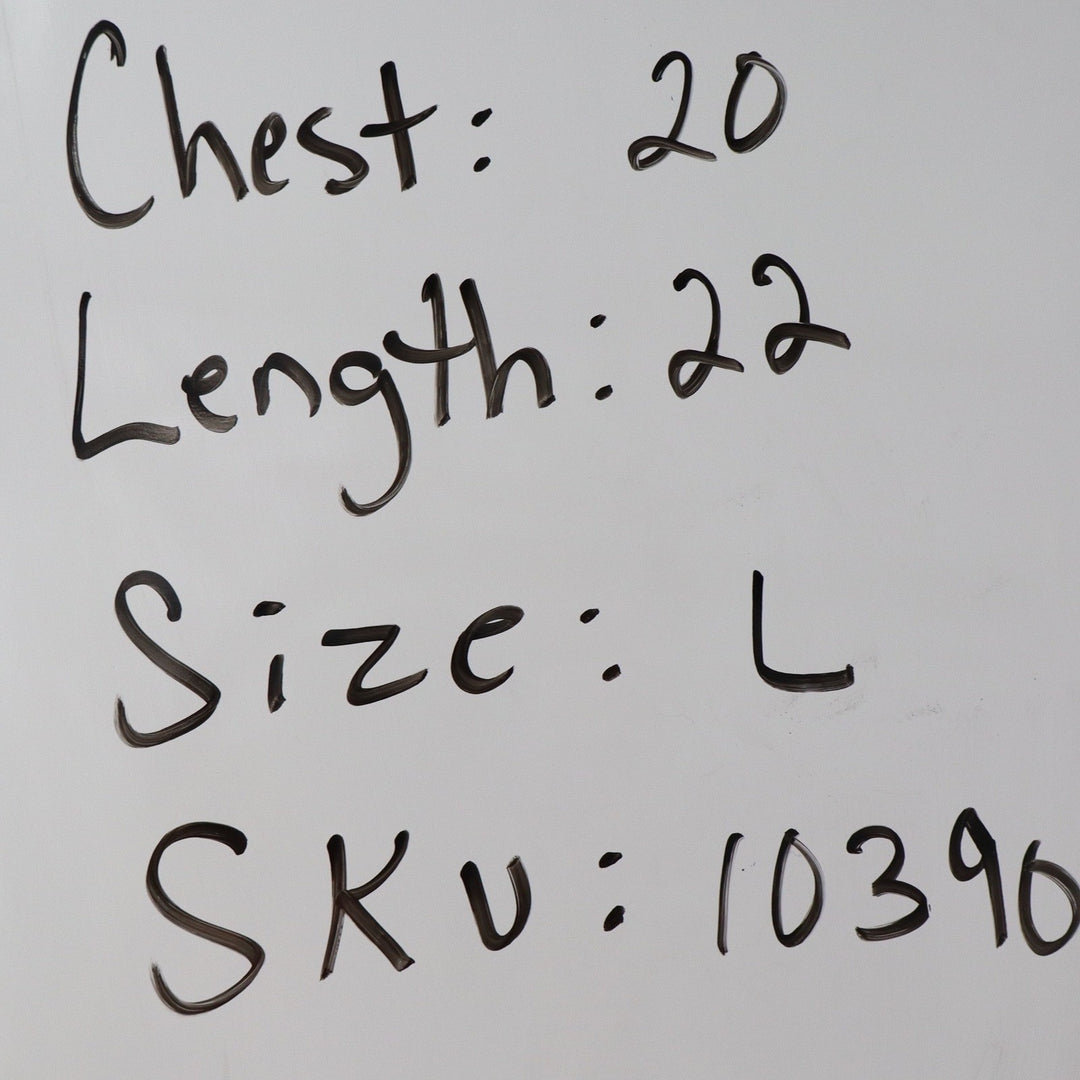 Chest: 20
Length: 22
Size: L
SKU: 10390